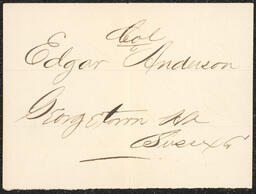 Col
Edgar Anderson
Georgetown
Sussex Co